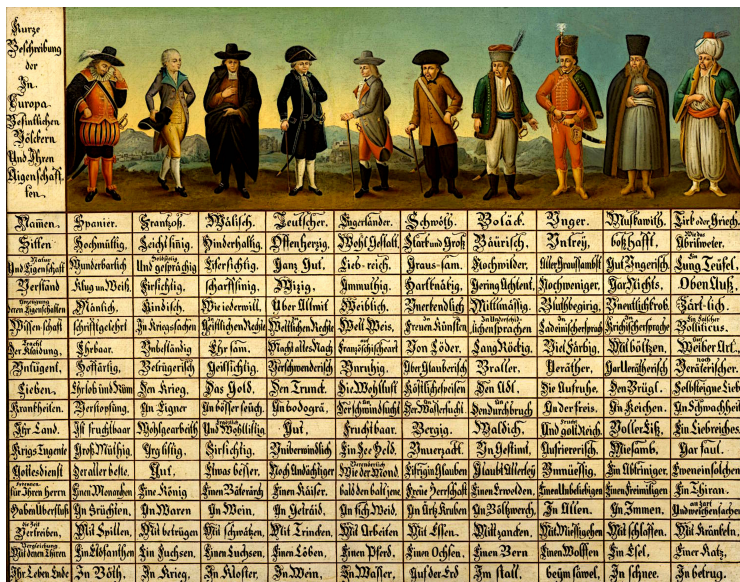 Kurze
Beschreibung
der
In
Europa
Befintlichen
Völckern
Und Ihren
Aigenschaff
ten.
Namen. Spanier. Frantzoß. Wälisch. Teutscher. Engerländer. Schwöth. Boläck. Unger. Muskawith. Tirk oder Griech.
Sitten Hochmüttig, Leichtsinig. Hinderhaltig. Offenherzig. Wohl Gestalt. Starck und Groß Bäurisch. Untrey, boßhafft. Wie das Abrilweter.
Natur Und Eigenschaft Wunderbarlich Holdseelig Und gesprächig Eifersichtig. Ganz Gut. Lieb-reich. Graus-sam. Hochwilder. Aller Graussambst Gut Ungerisch. Ein Lung Teüfel.
Verstand Klug un Weiß. Firsichtig. scharffsinig. Wizig. Ammuthig. Hartknäbig. Gering Achtent. Nochweniger. Gar Nichts. Oben Auß.
Anzeigung deren Eigenschaften Mänlich. Kindisch. Wie iederwill. Über Allmit Weiblich. Unerkendlich Mittlmässig. Bluthbegirig. Unentlichkrob. Zärt-lich.
Wissenschaft schrifftgelehrt In Kriegssachen Geistlichen Rechte Weltlichen Rechte Welt Weis. In Freuen Künsten In Underschidlichen sprachen In Ladeinischer sprach In Krichischer sprache Ein Falscher Bolliticus.
Tracht der Klaidung. Ehrbaar. Unbeständig Ehrsam. Macht alles Nach Französischeart Von Löder. Lang Röckig. Viel Färbig. Mit böltzen. Auf Weiber Art.
Untugent. Hoffärtig. Betrügerisch Geilsichtig. Verschwenderisch Unruhig. Aber Glauberisch Braller. Veräther. Gar Verätherisch noch Verätherischer.
Lieben. Ehrlob und Rüm Den Krieg. Das Gold. Den Trunck. Die Wohllust Köstliche speisen Den Adl. Die Aufruhe. Den Brügl. Selbsteigne Lieb
Kranckheiten. Verstopfung. An Eigner An böser seüch. An bodogrä. An der schwindsucht An der Wassersucht. An Den durchbruch An der freis. An Keichen. An Schwachheit
Ihr Land. Ist fruchtbaar Wohlgearbeith Ergözlich Und Wohllistig Gut. Fruchtbaar. Bergig. Waldich. Frucht Und gold Reich. Voller Eiß. Ein Liebreiches.
Krigs Tugente Groß Müthig. Arg listig. Firsichtig. Uniberwindlich Ein See Held. Unverzackt. Un Gestimt. Aufriererisch. Miesamb. Gar faul.
Gottesdienst Der aller beste. Gut. Etwas besser. Noch Andächtiger Veränderlich Wie der Mond. Eifrig in Glauben Glaubt Allerley Unmüessig. Ein Abtriniger. Eweneinsolchen
Erkennen für Ihren herrn Einen Monarchen Eine König Einen Batterärch Einen Käiser. bald den balt jene. Freie Herrschaft Einen Erwelden. Einen Unbelibigen Einen Freimiligen Ein Thiran.
Haben Überfluß An Früchten. An Waren An Wein. An Getraid. An fich Weid. An Artz Kruben An Böltzwerch. In Allen. In Immen. an zart Und weichen sachen
die Zeit Vertreiben. Mit Spillen. Mit betrügen Mit schwätzen. Mit Trincken. Mit Arbeiten Mit Essen. Mit zancken. Mit Miessigehen Mit schlaffen. Mit Kränkeln.
Vergleichung Mit denen Thiren Ein Elofanthen Ein Fuchsen. Einen Luchsen. Einen Löben. Einen Pferd. Einen Ochsen. Einen Bern Einen Wolffen Ein Esel. Einer Katz.
Ihr Leben Ende In Böth. In Krieg. In Kloster. In Wein. In Wasser. Auf der Erd Im stall. beym säwel. In schnee. In betrug.